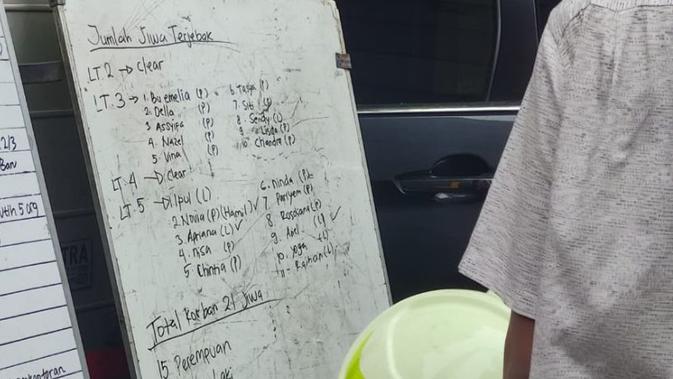 Jumlah Jiwa Terjebak
LT 2 → Clear
LT. 3 → 1. Bu emelia (P)
2. Della (P)
3. ASSYIFA (P)
4. Nazel (P)
5. Vina (P)
6. Tasya (P)
7. Siti (P)
8. Sendy (L)
10. Chandra (P)
LT. 4 → Clear
LT. 5 → 1. Ipul (L)
2. Novia (P) (Hamil) ✓
3. Apriana (L) ✓
4. Nisa (P)
5. Chintia (P)
6. Dinda (P)
7. Pariyem (P)
8. Rosdiana (P)
9. (L) ✓
10. Yoga (L)
11. (L)
Total Korban 21 Jiwa
15 Perempuan